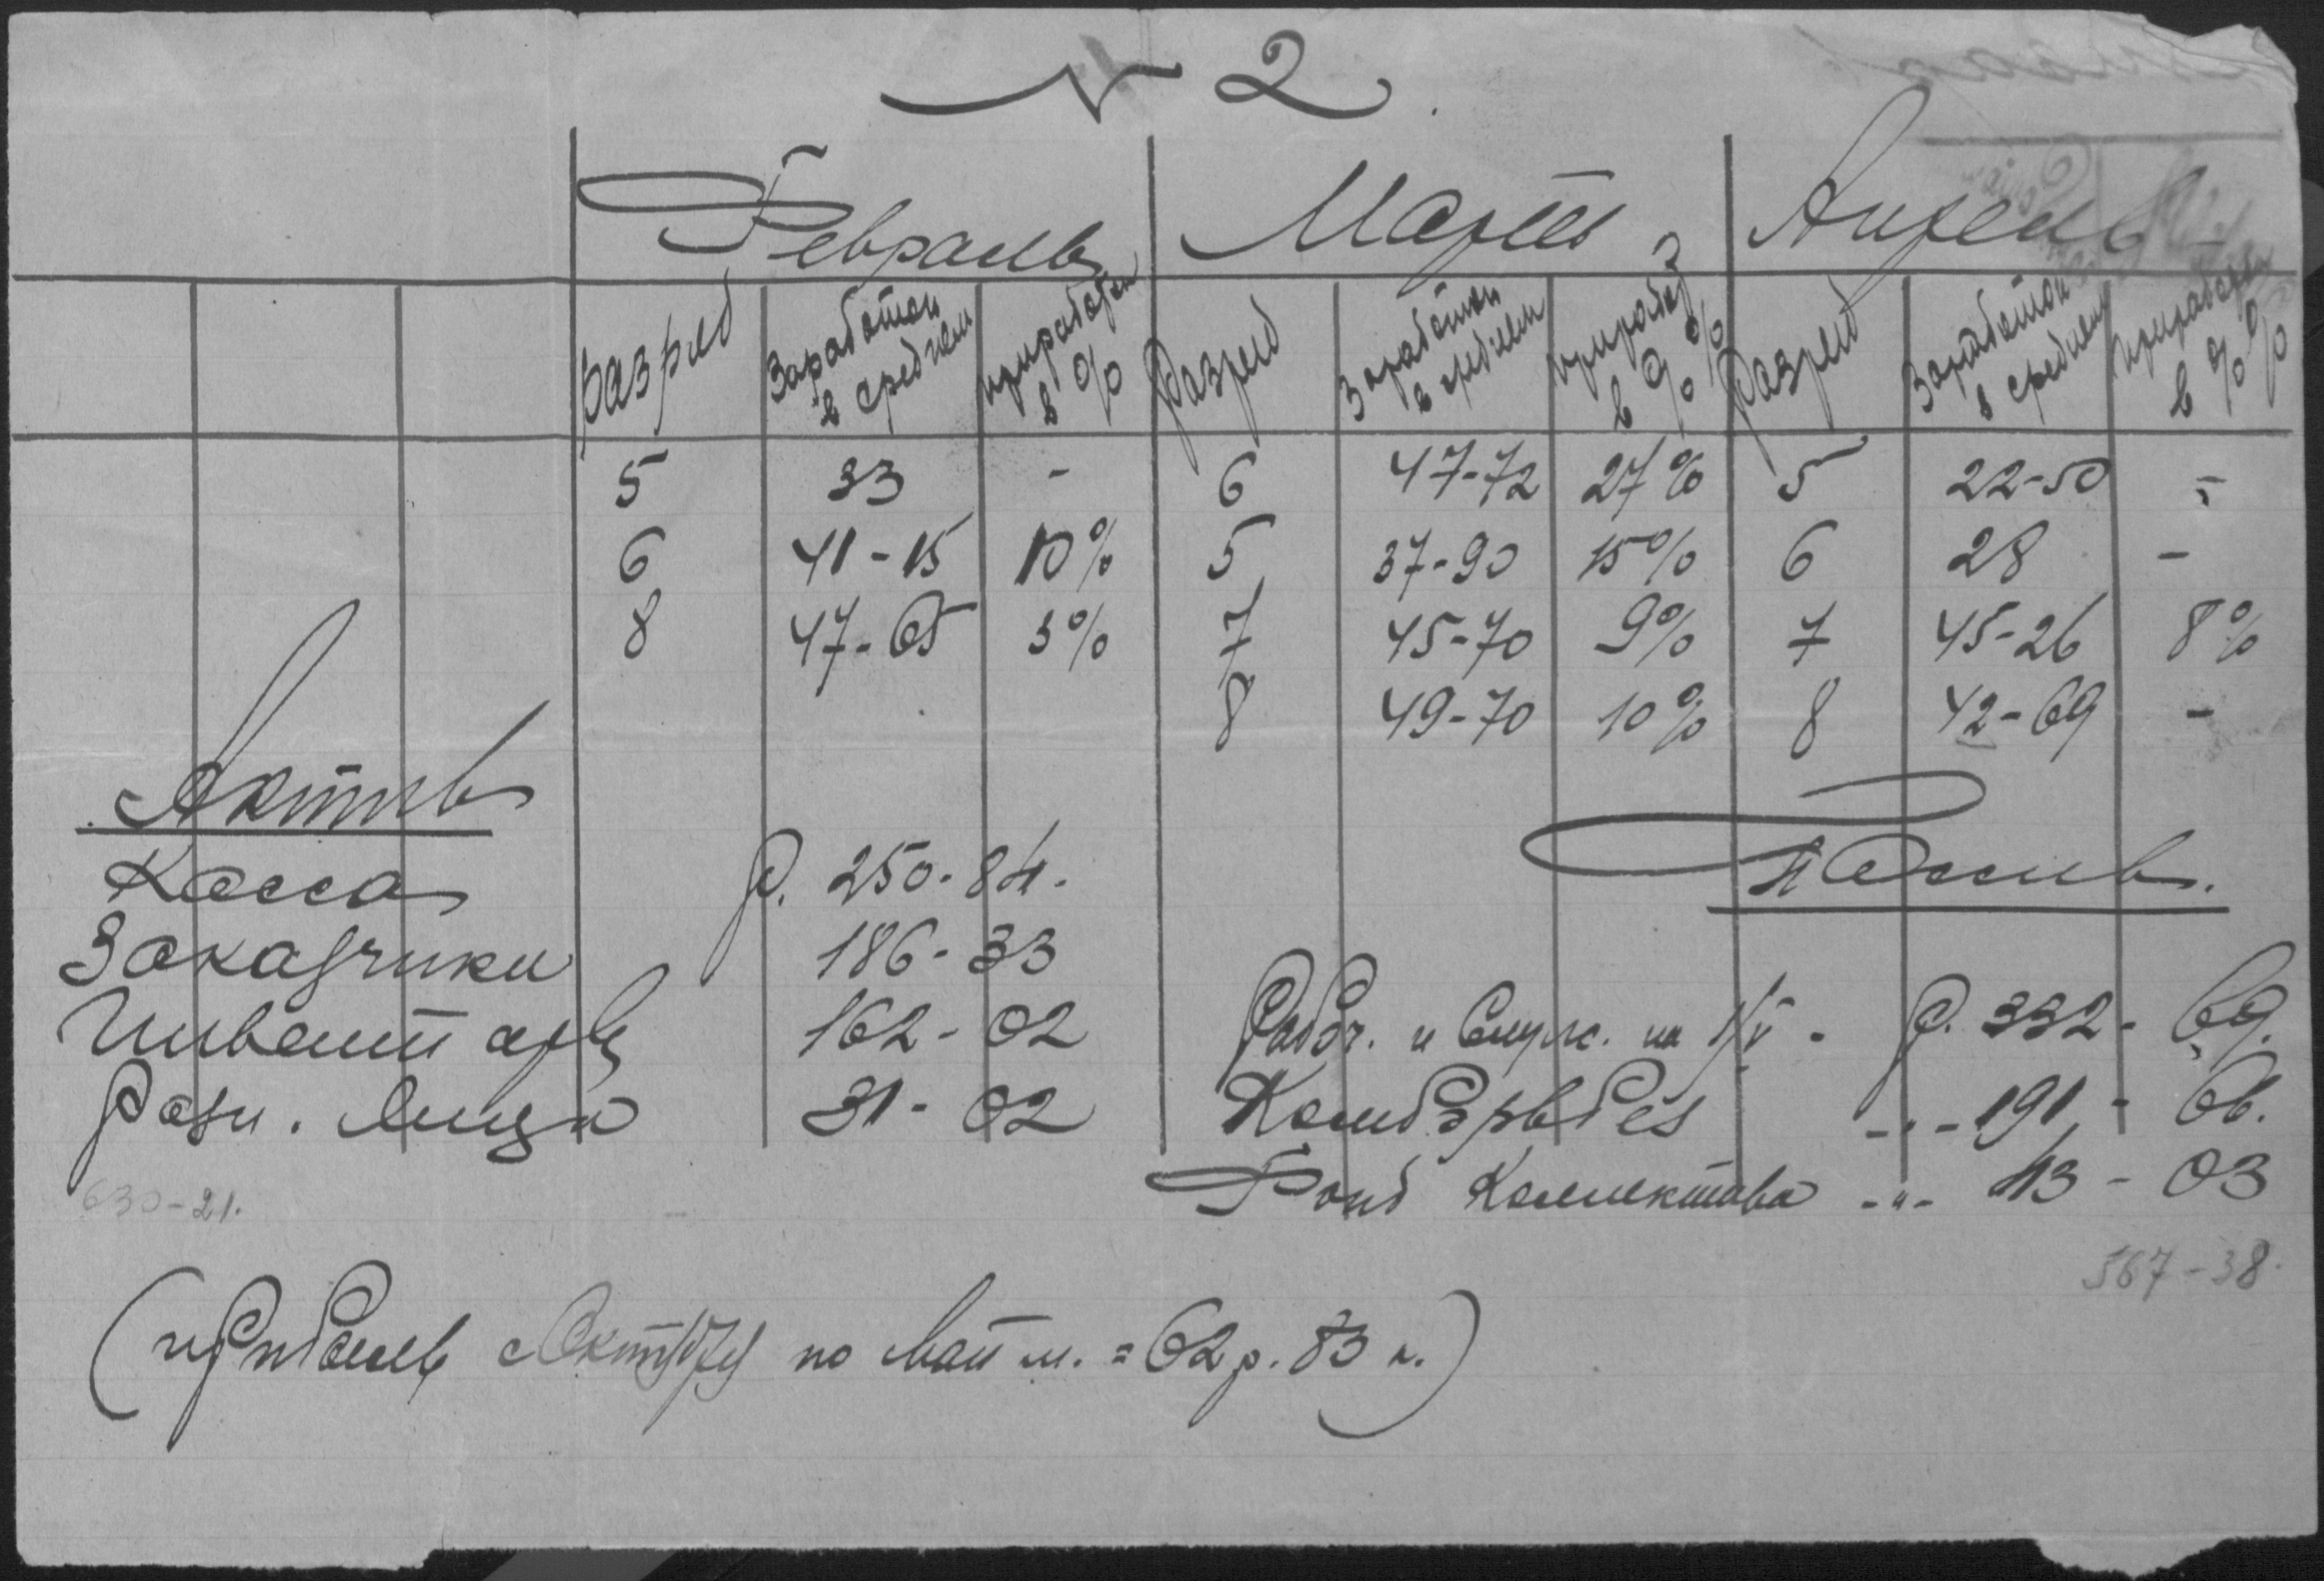 № 2.
Февраль Март Апрель
разряд Заработок в среднем приработок в % Разряд Заработок в среднем приработ в %% Разряд Заработок в среднем приработок в %%
5 33 - 6 47-72 27% 5 22-50 -
6 41-15 10% 5 37-90 15% 6 28 -
8 47-65 3% 7 45-70 9% 7 45-26 8%
8 49-70 10% 8 42-69 -
Актив
Пассив.
Касса р. 250-84.
Заказчики 186-33
Инвентарь 162-02
Разн. Лица 31-02
630-21.
Рабоч. и Служ. на 1/V - р. 332-69.
-"- 191-66.
Фонд Коллектива -"- 43-03
567-38.
(прибыль по май м. = 62 р. 83 к.)